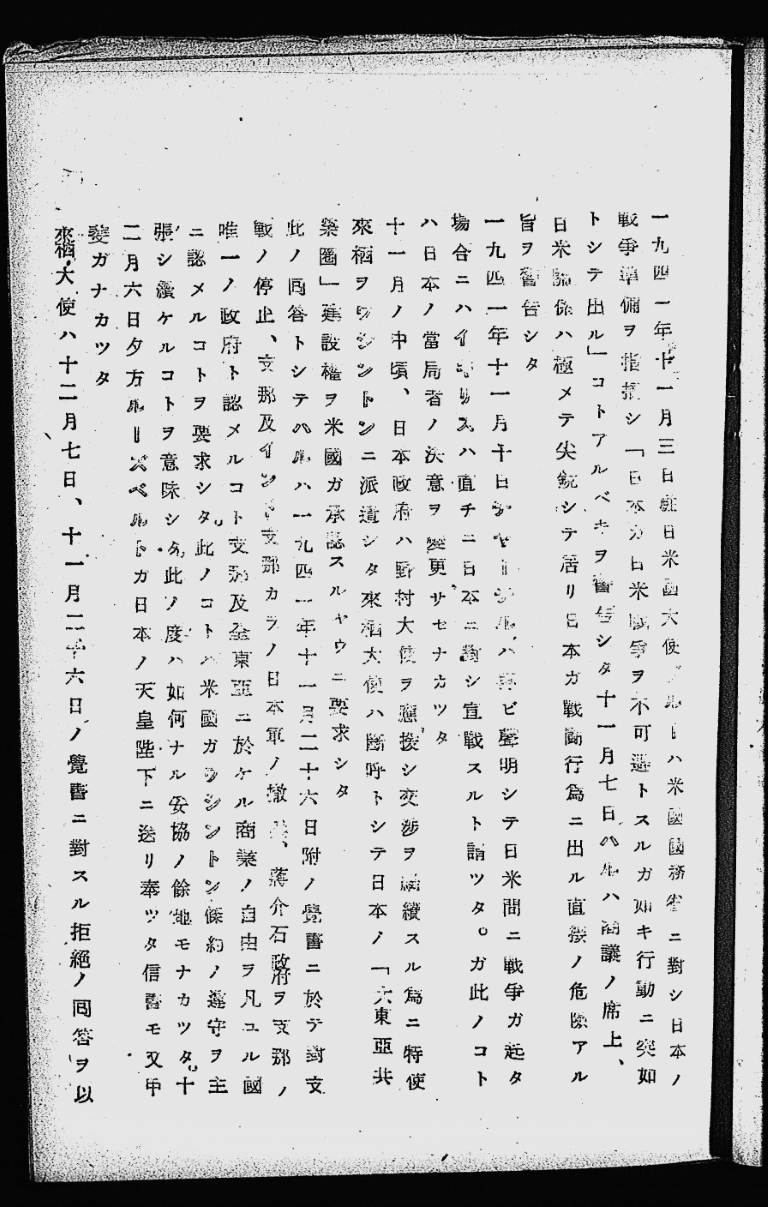 一九四一年十一月三日駐日米國大使グルーハ米國國務省ニ對シ日本ノ
戰爭準備ヲ指摘シ「日本ガ日米戰爭ヲ不可避トスルガ如キ行動ニ突如
トシテ出ル」コトアルベキヲ警告シタ十一月七日ハルハ閣議ノ席上、
日米關係ハ極メテ尖鋭シテ居リ日本ガ戰鬪行爲ニ出ル直接ノ危險アル
旨ヲ警告シタ
一九四一年十一月十日チャーチルハ再ビ聲明シテ日米間ニ戰爭ガ起タ
場合ニハイギリスハ直チニ日本ニ對シ宣戰スルト語ツタ。ガ此ノコト
ハ日本ノ當局者ノ決意ヲ變更サセナカツタ
十一月ノ中頃、日本政府ハ野村大使ヲ應援シ交渉ヲ繼續スル爲ニ特使
來栖ヲワシントンニ派遣シタ來栖大使ハ斷呼トシテ日本ノ「大東亞共
榮圈」建設權ヲ米國ガ承認スルヤウニ要求シタ
此ノ囘答トシテハルハ一九四一年十一月二十六日附ノ覺書ニ於テ對支
戰ノ停止、支那及インド支那カラノ日本軍ノ撤兵、蔣介石政府ヲ支那ノ
唯一ノ政府ト認メルコト支那及全東亞ニ於ケル商業ノ自由ヲ凡ユル國
ニ認メルコトヲ要求シタ。此ノコトハ米國ガワシントン條約ノ遵守ヲ主
張シ續ケルコトヲ意味シタ此ノ度ハ如何ナル妥協ノ餘地モナカツタ。十
二月六日夕方ルーズベルトガ日本ノ天皇陛下ニ送リ奉ツタ信書モ又甲
斐ガナカツタ
來栖大使ハ十二月七日、十一月二十六日ノ覺書ニ對スル拒絶ノ囘答ヲ以